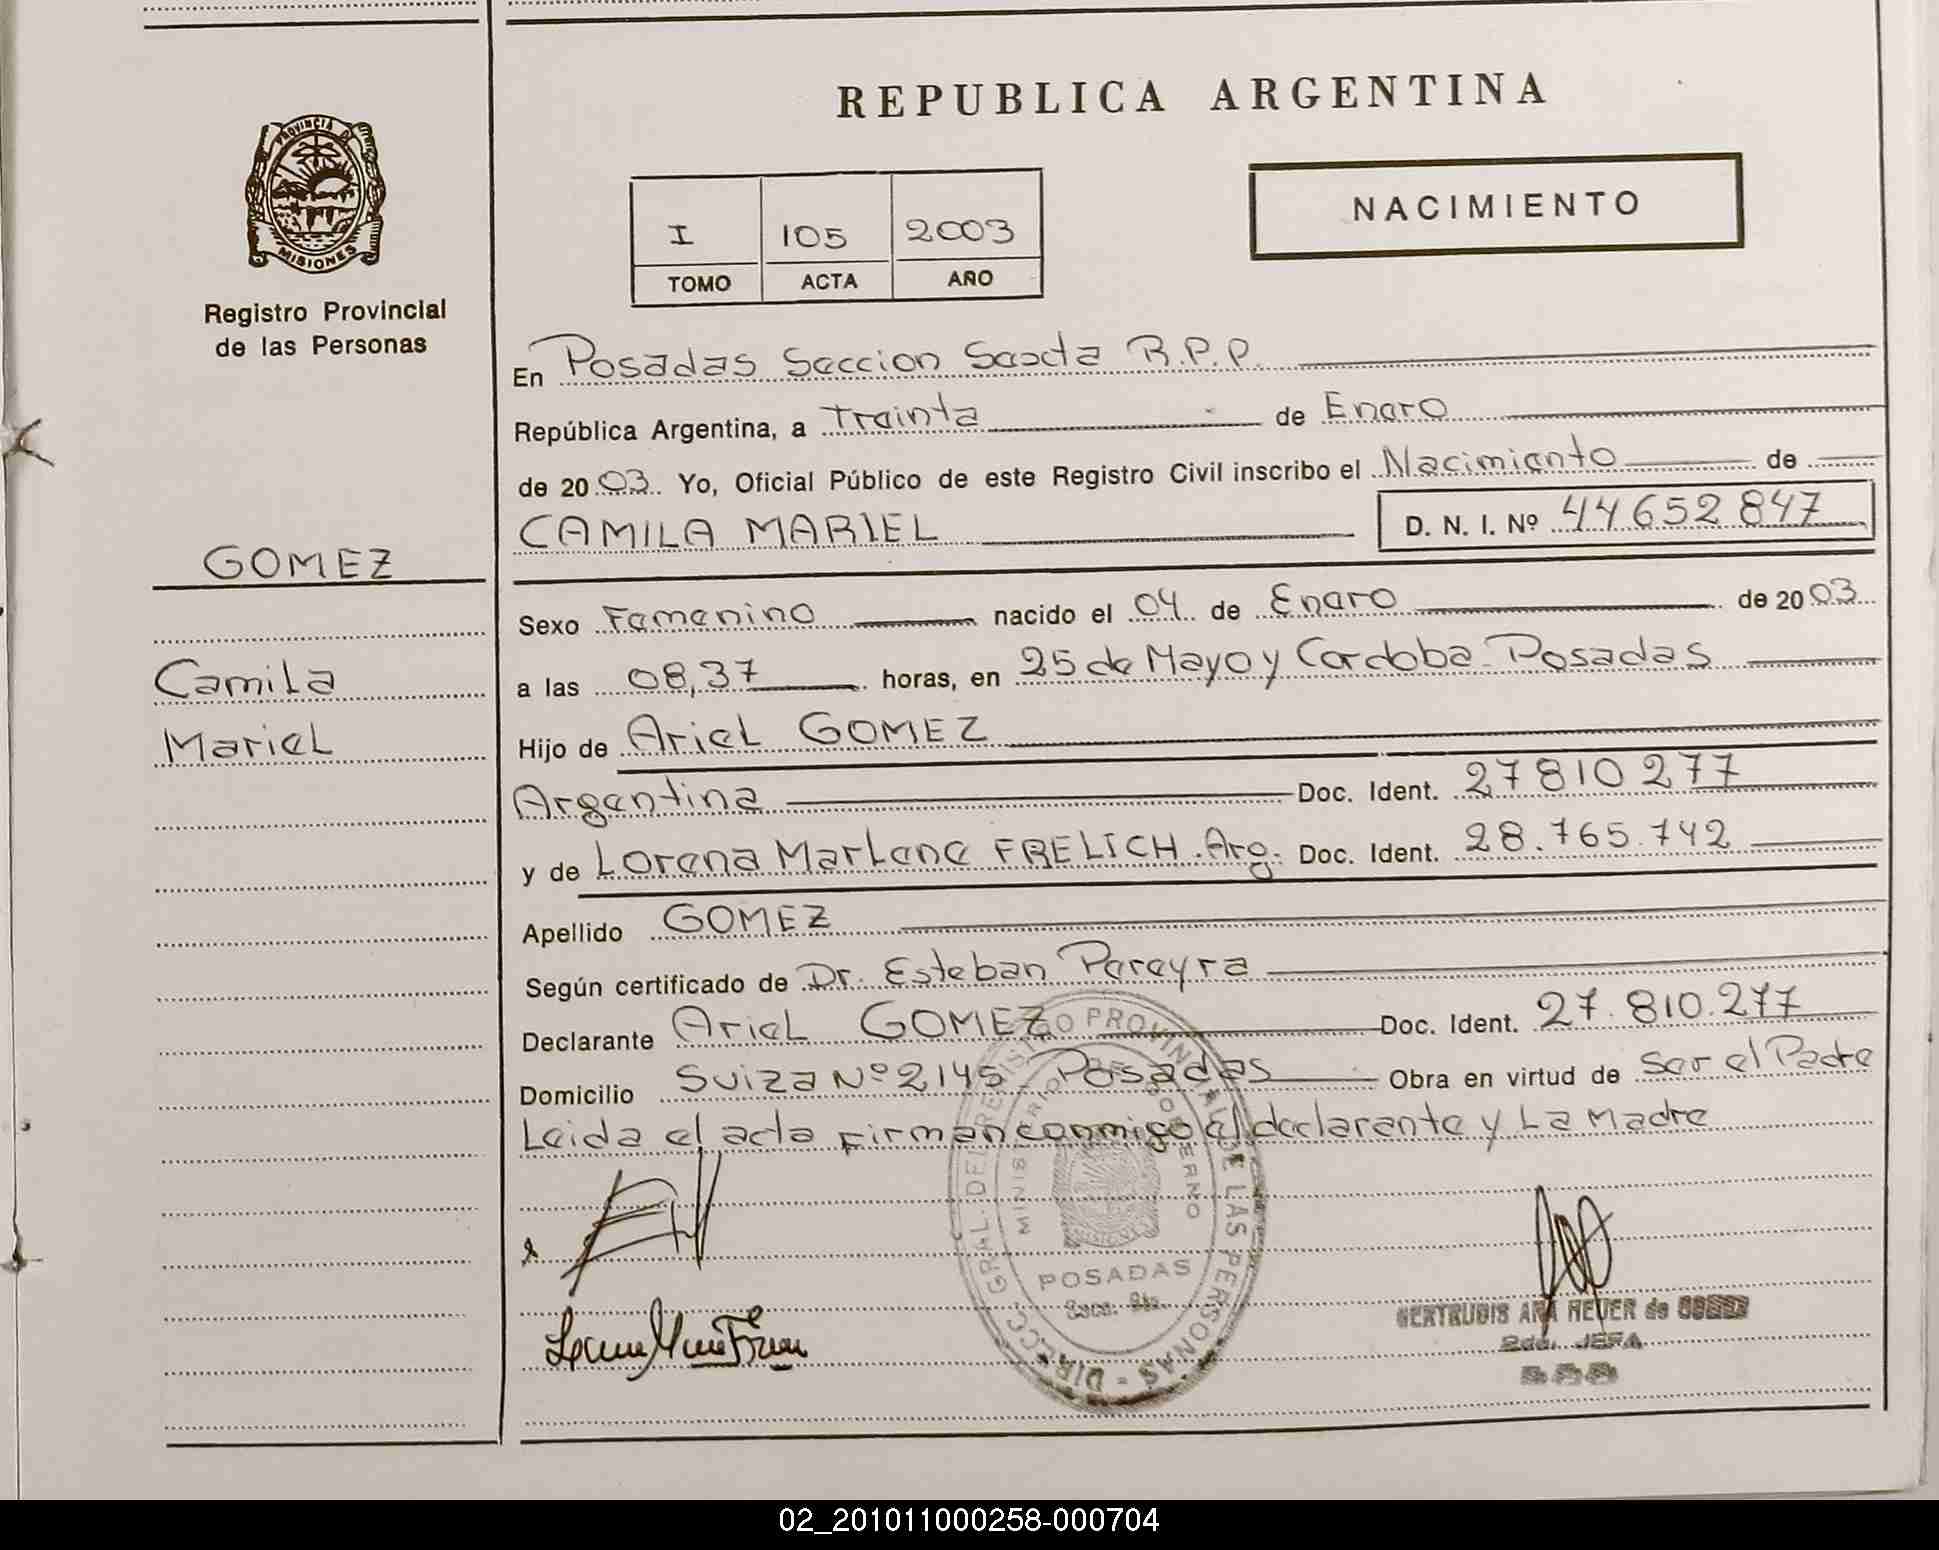 REPUBLICA ARGENTINA
PROVINCIA DE
MISIONES
Registro Provincial
de las Personas
NACIMIENTO
I 105 2003
TOMO ACTA AÑO
En Posadas Seccion Sexta R.P.P.
República Argentina, a Treinta de Enero
de 2003. Yo, Oficial Público de este Registro Civil inscribo el Nacimiento de
CAMILA MARIEL D. N. I. Nº 44652847
GOMEZ
Camila
Mariel
Sexo Femenino nacido el 04 de Enero de 2003
a las 08,37 horas, en 25 de Mayo y Cordoba - Posadas
Hijo de Ariel GOMEZ
Argentina Doc. Ident. 27810277
y de Lorena Marlene FRELICH. Arg. Doc. Ident. 28.765.742
Apellido GOMEZ
Según certificado de Dr. Esteban Pereyra
Declarante Ariel GOMEZ Doc. Ident. 27.810.277
Domicilio Suiza Nº 2145 - Posadas Obra en virtud de Ser el Padre
Leida el acta firman conmigo el declarante y La Madre
DIRECC. GRAL. DEL REGISTRO PROVINCIAL DE LAS PERSONAS
MINISTERIO DE GOBIERNO
MISIONES
POSADAS
Secc. 6ta.
GERTRUDIS ANA HEUER de
2da. JEFA
02_201011000258-000704